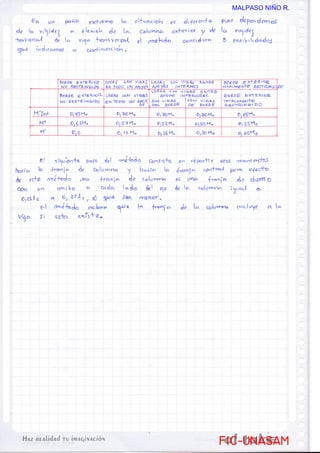 MALPASO NIÑO R.
En un paño extremo la situación es diferente pues dependemos
de la rigidez a flexión de la columna exterior y de la rigidez
torsional de la viga transversal, el método consideran 5 posibilidades
que indicamos a continuación:
BORDE EXTERIOR NO RESTRINGIDO
LOSAS CON VIGAS EN TODOS LOS APOYOS
LOSAS SIN VIGAS ENTRE APOYOS INTERIORES
SIN VIGAS DEL BORDE
CON VIGAS DE BORDE
BORDE EXTERIOR TOTALMENTE RESTRINGIDO
M⁺Int 0,75Mo 0,70Mo 0,70Mo 0,70Mo 0,65Mo
M⁺ 0,63Mo 0,57Mo 0,52Mo 0,50Mo 0,35Mo
M⁻ 0,0 0,16Mo 0,26Mo 0,30Mo 0,65Mo
El siguiente paso del método consiste en repartir esos momentos
hacia la franja de columna y hacia la franja central para efecto
de este método una franja de columna es una franja de diseño
con un ancho a cada lado del eje de la columna igual a
0,25l₂ o 0,25l₁, el que sea menor.
El método indica que la franja de la columna incluye a la
viga si esta existe.
Haz realidad tu imaginación
FIC-UNASAM